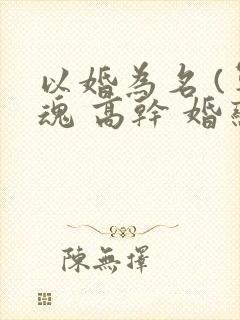 以婚為名(
魂 高幹 婚
陳無擇